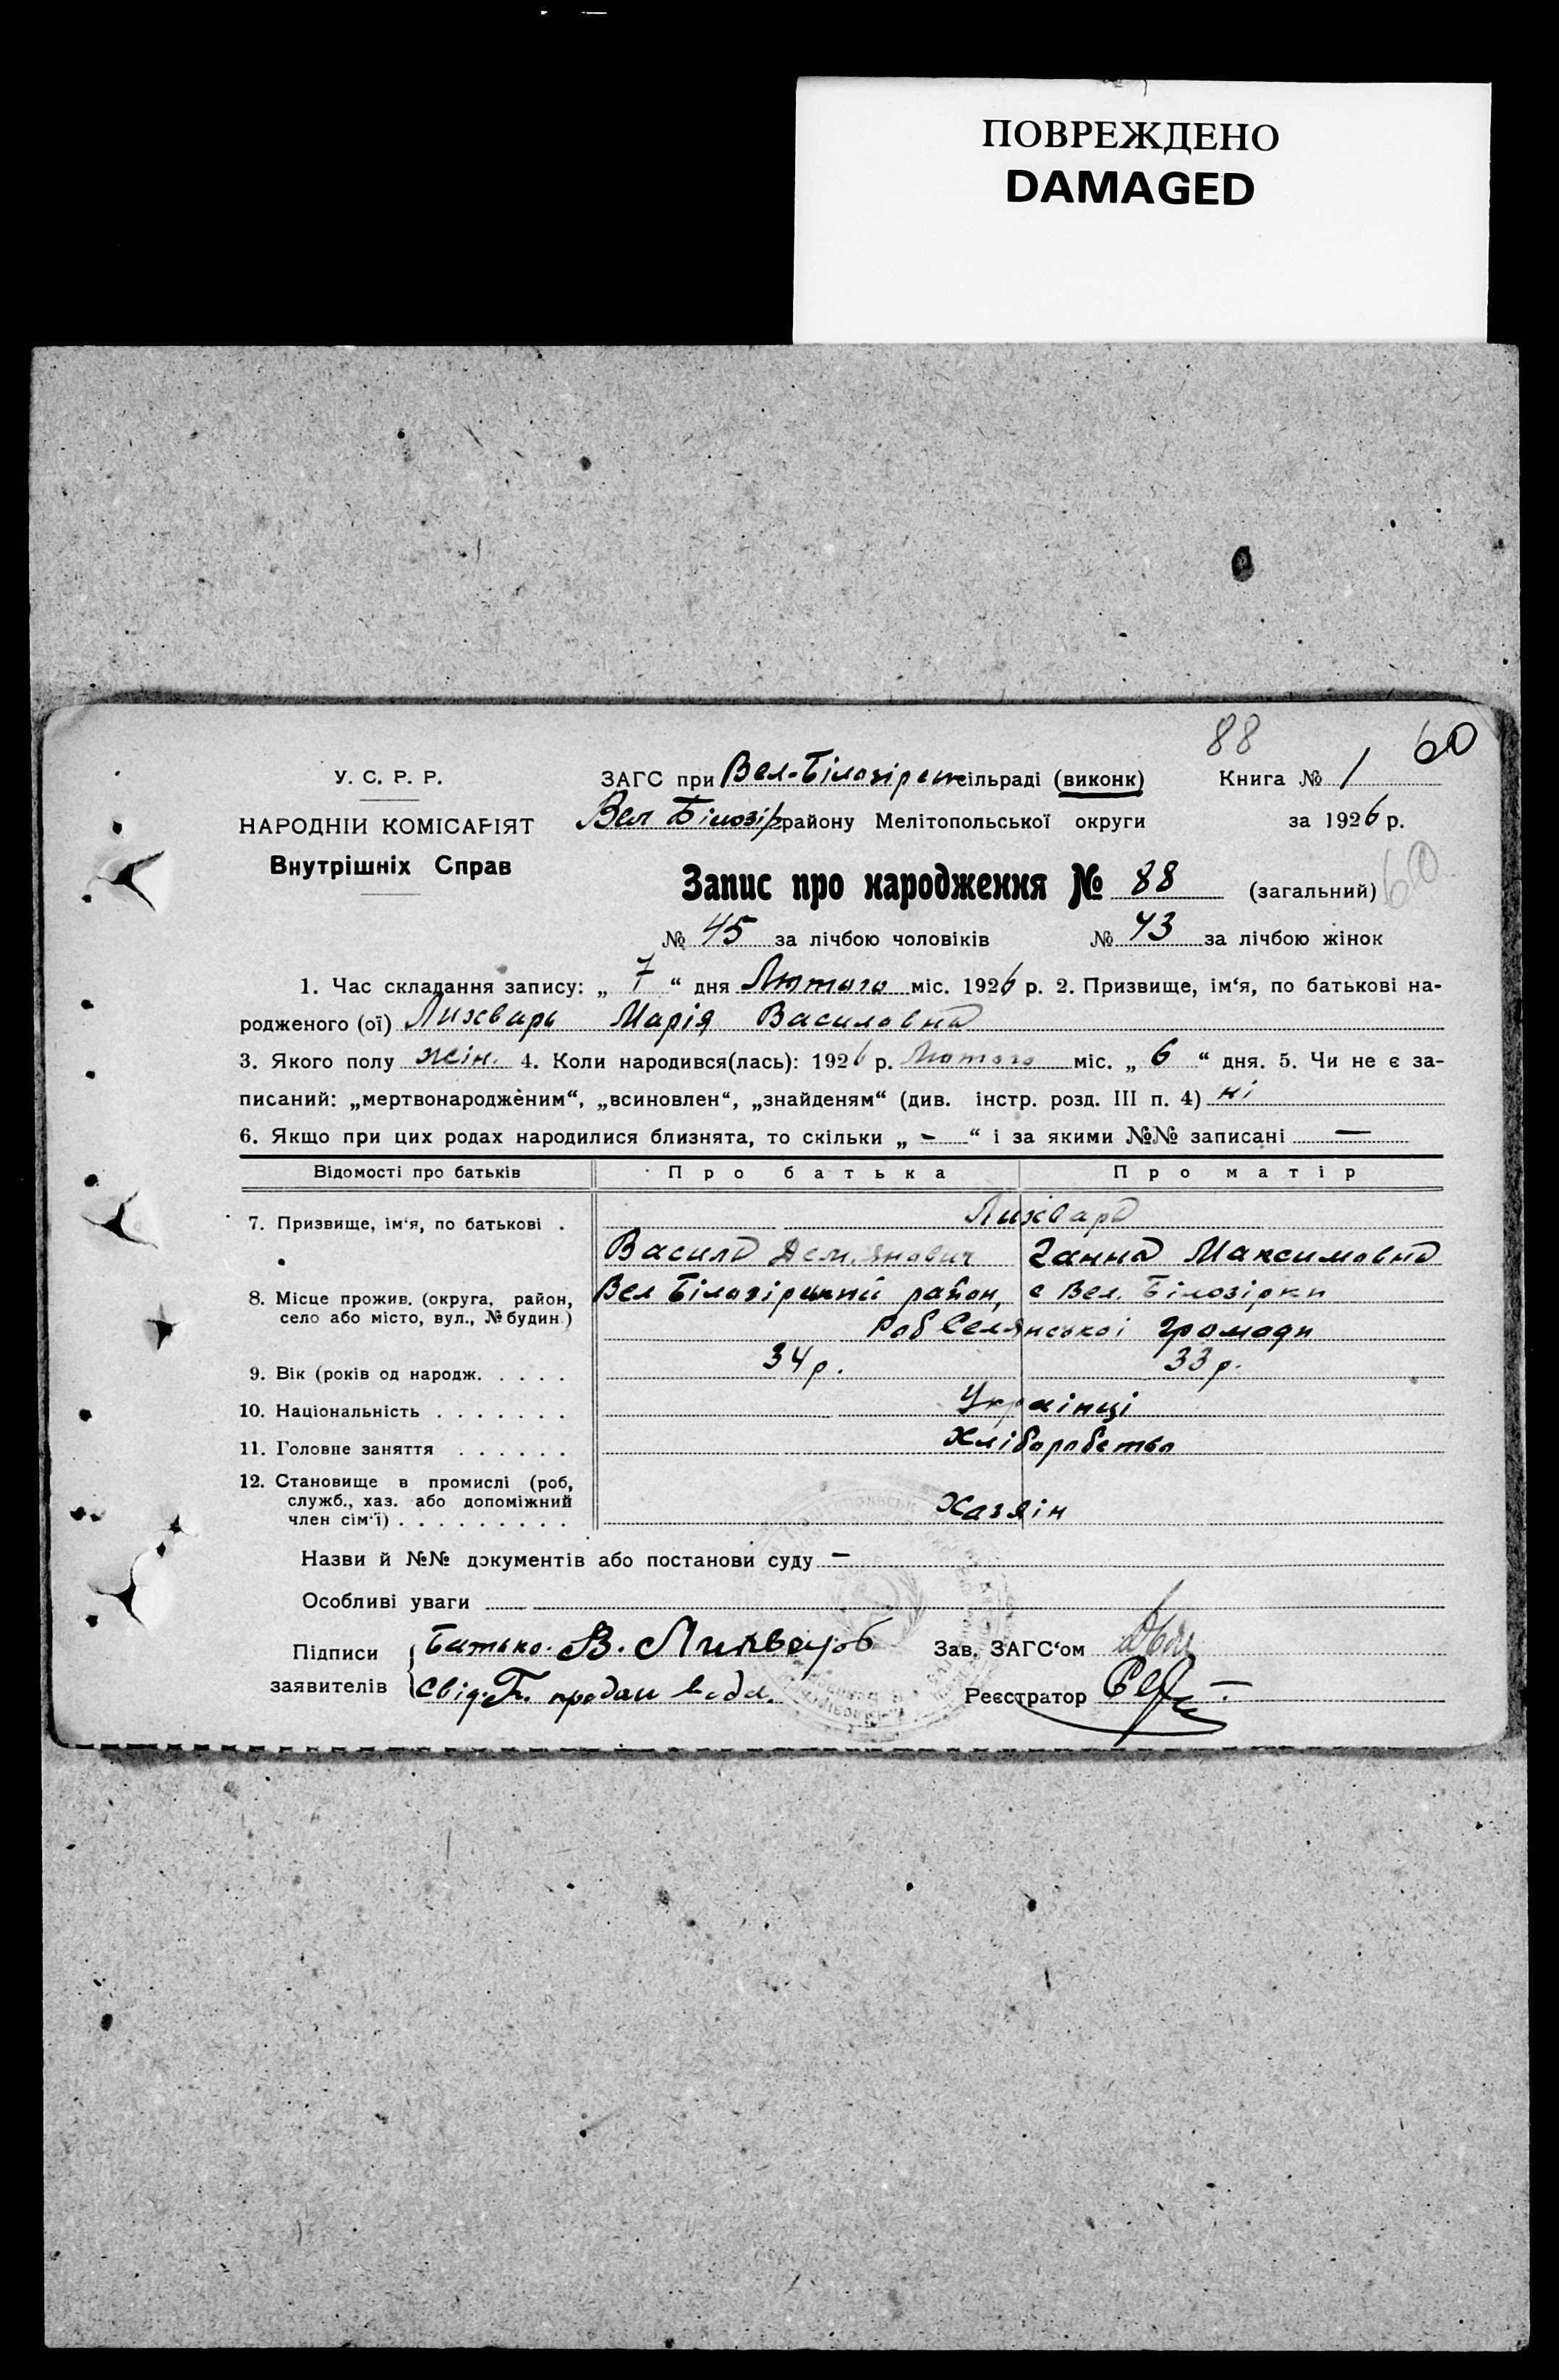 ПОВРЕЖДЕНО
DAMAGED
88 60
У. С. Р. Р.
НАРОДНІЙ КОМІСАРІЯТ
Внутрішніх Справ
ЗАГС при Вел-Білозірськ сільраді (виконк) Книга № 1
Вел Білозір району Мелітопольської округи за 1926 р.
Запис про народження № 88 (загальний) 60
№ 45 за лічбою чоловіків № 43 за лічбою жінок
1. Час складання запису: „ 7 “ дня Лютого міс. 1926 р. 2. Призвище, ім‘я, по батькові на-
родженого (ої) Лихварь Марія Василовна
3. Якого полу жін. 4. Коли народився(лась): 1926 р. Лютого міс. „ 6 “ дня. 5. Чи не є за-
писаний: „мертвонародженим“, „всиновлен“, „знайденям“ (див. інстр. розд. III п. 4) ні
6. Якщо при цих родах народилися близнята, то скільки „ - “ і за якими №№ записані —
Відомості про батьків Про батька Про матір
7. Призвище, ім‘я, по батькові . Лихварь
Василь Дем.янович Ганна Максимовна
8. Місце прожив. (округа, район, Вел Білозірський район, с Вел. Білозірки
село або місто, вул., № будин.) Роб Селянської громади
9. Вік (років од народж. . . . . 34 р. 33 р.
10. Національність . . . . . . . Українці
11. Головне заняття . . . . . . Хліборобство
12. Становище в промислі (роб,
служб., хаз. або допоміжний Хазяін
член сім‘ї) . . . . . . . . .
Назви й №№ документів або постанови суду —
Особливі уваги
Підписи Батько. В. Лихварь Зав. ЗАГС‘ом
заявителів Свід. Реєстратор